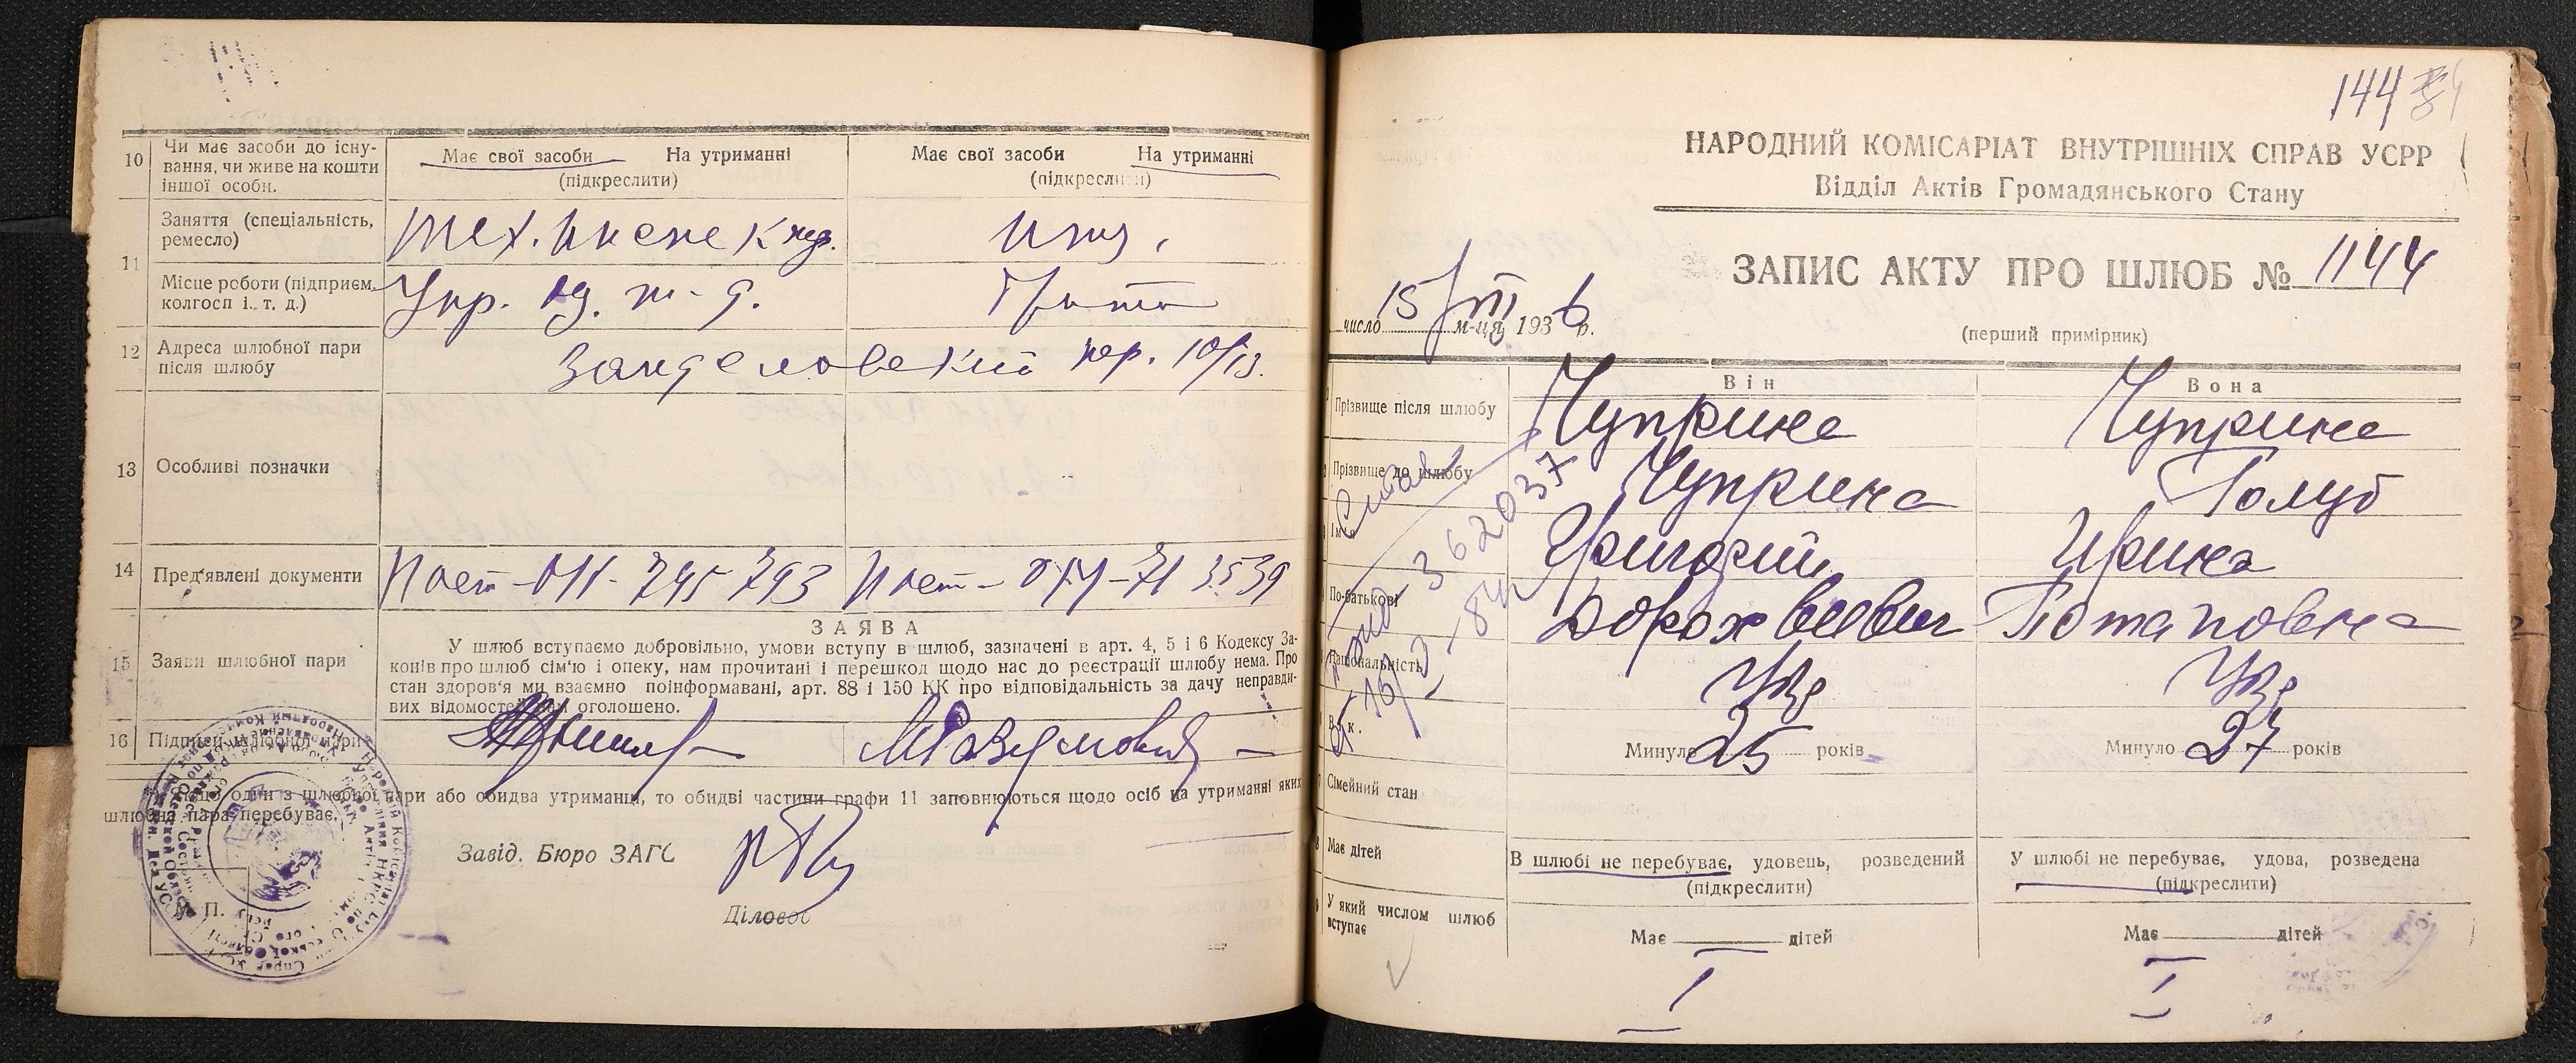 10 Чи має засоби до існу-
вання, чи живе на кошти
іншої особи.
Має свої засоби На утриманні
(підкреслити)
Має свої засоби На утриманні
(підкреслити)
11 Заняття (спеціальність,
ремесло)
Тех.
Місце роботи (підприєм.
колгосп і. т. д.)
Упр.
12 Адреса шлюбної пари
після шлюбу
пер. 10/13.
13 Особливі позначки
14 Пред'явлені документи
745793
ЗАЯВА
15 Заяви шлюбної пари
У шлюб вступаємо добровільно, умови вступу в шлюб, зазначені в арт. 4, 5 і 6 Кодексу За-
конів про шлюб сім'ю і опеку, нам прочитані і перешкод щодо нас до реєстрації шлюбу нема. Про
стан здоров'я ми взаємно поінформавані, арт. 88 і 150 КК про відповідальність за дачу неправди-
вих відомостей нам оголошено.
16 Підписи шлюбної пари
Якщо один з шлюбної пари або обидва утриманці, то обидві частини графи 11 заповнюються щодо осіб на утриманні яких
шлюбна пара перебуває.
Завід. Бюро ЗАГС
Діловод
М. П.
144
НАРОДНИЙ КОМІСАРІАТ ВНУТРІШНІХ СПРАВ УСРР
Відділ Актів Громадянського Стану
ЗАПИС АКТУ ПРО ШЛЮБ № 1144
число 15/VII м-ця 1936 р.
(перший примірник)
Він Вона
Прізвище після шлюбу Чуприна Чуприна
Прізвище до шлюбу Чуприна Голуб
Ім'я Григорий Ирина
По-батькові Дорофеевич Потаповна
Національність Укр Укр
Вік. Минуло 25 років Минуло 27 років
Сімейний стан
Має дітей
В шлюбі не перебуває, удовець, розведений
(підкреслити)
У шлюбі не перебуває, удова, розведена
(підкреслити)
У який числом шлюб
вступає
Має дітей Має дітей
I I
362037